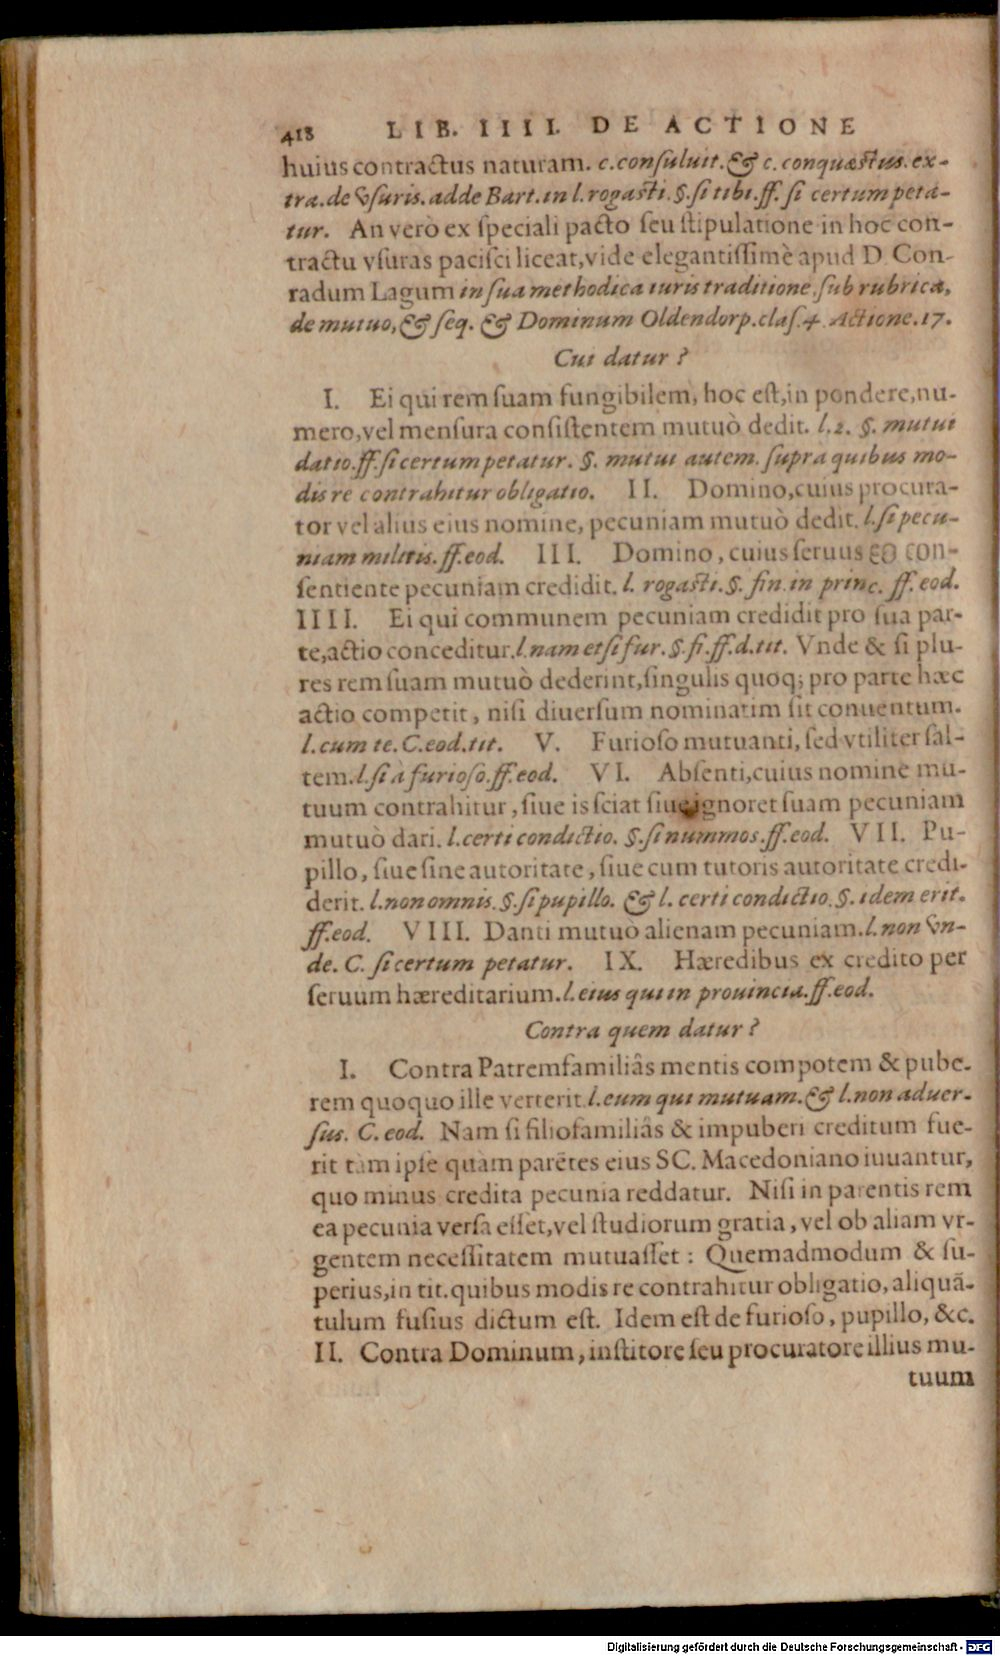 418 LIB. IIII. DE ACTIONE
huius contractus naturam. c. consuluit. & c. conquæstus. ex-
tra. de vsuris. adde Bart. in l. rogasti. §. si tibi. ff. si certum peta-
tur. An verò ex speciali pacto seu stipulatione in hoc con-
tractu vsuras pacisci liceat, vide elegantissimè apud D. Con-
radum Lagum in sua methodica iuris traditione. sub rubrica,
de mutuo, & seq. & Dominum Oldendorp. clas. 4. Actione. 17.
Cui datur?
I. Ei qui rem suam fungibilem, hoc est, in pondere, nu-
mero, vel mensura consistentem mutuò dedit. l. 2. §. mutui
datio. ff. si certum petatur. §. mutui autem. supra quibus mo-
dis re contrahitur obligatio. II. Domino, cuius procura-
tor vel alius eius nomine, pecuniam mutuò dedit. l. si pecu-
niam militis. ff. eod. III. Domino, cuius seruus eo con-
sentiente pecuniam credidit. l. rogasti. §. fin. in princ. ff. eod.
IIII. Ei qui communem pecuniam credidit pro sua par-
te, actio conceditur. l. nam et si fur. §. fi. ff. d. tit. Vnde & si plu-
res rem suam mutuò dederint, singulis quoq; pro parte hæc
actio competit, nisi diuersum nominatim sit conuentum.
l. cum te. C. eod. tit. V. Furioso mutuanti, sed vtiliter sal-
tem. l. si à furioso. ff. eod. VI. Absenti, cuius nomine mu-
tuum contrahitur, siue is sciat siue ignoret suam pecuniam
mutuò dari. l. certi condictio. §. si nummos. ff. eod. VII. Pu-
pillo, siue sine autoritate, siue cum tutoris autoritate credi-
derit. l. non omnis. §. si pupillo. & l. certi condictio. §. idem erit.
ff. eod. VIII. Danti mutuò alienam pecuniam. l. non vn-
de. C. si certum petatur. IX. Hæredibus ex credito per
seruum hæreditarium. l. eius qui in prouincia. ff. eod.
Contra quem datur?
I. Contra Patremfamiliâs mentis compotem & pube-
rem quoquo ille verterit. l. eum qui mutuam. & l. non aduer-
sus. C. eod. Nam si filiofamiliâs & impuberi creditum fue-
rit tàm ipse quàm parẽtes eius SC. Macedoniano iuuantur,
quo minus credita pecunia reddatur. Nisi in parentis rem
ea pecunia versa esset, vel studiorum gratia, vel ob aliam vr-
gentem necessitatem mutuasset: Quemadmodum & su-
perius, in tit. quibus modis re contrahitur obligatio, aliquã-
tulum fusius dictum est. Idem est de furioso, pupillo, &c.
II. Contra Dominum, institore seu procuratore illius mu-
tuum
Digitalisierung gefördert durch die Deutsche Forschungsgemeinschaft - DFG